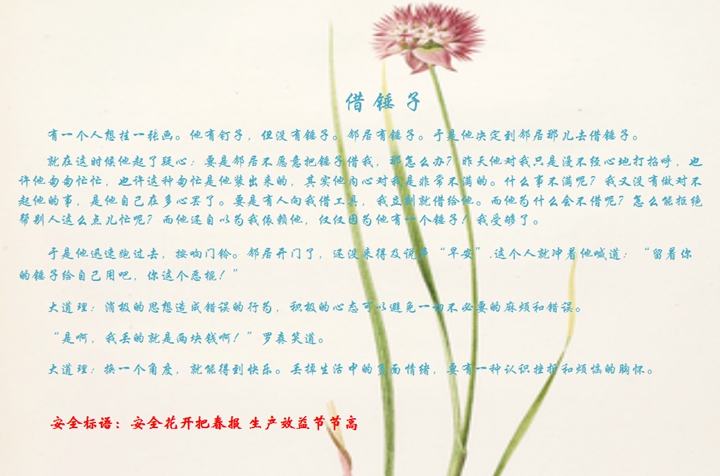 借锤子
有一个人想挂一张画。他有钉子，但没有锤子。邻居有锤子。于是他决定到邻居那儿去借锤子。
就在这时候他起了疑心：要是邻居不愿意把锤子借我，那怎么办？昨天他对我只是漫不经心地打招呼，也
许他匆匆忙忙，也许这种匆忙是他装出来的，其实他内心对我是非常不满的。什么事不满呢？我又没有做对不
起他的事，是他自己在多心罢了。要是有人向我借工具，我立刻就借给他。而他为什么会不借呢？怎么能拒绝
帮别人这么点儿忙呢？而他还自以为我依赖他，仅仅因为他有一个锤子！我受够了。
于是他迅速跑过去，按响门铃。邻居开门了，还没来得及说声“早安”，这个人就冲着他喊道：“留着你
的锤子给自己用吧，你这个恶棍！”
大道理：消极的思想造成错误的行为，积极的心态可以避免一切不必要的麻烦和错误。
“是啊，我丢的就是两块钱啊！”罗森笑道。
大道理：换一个角度，就能得到快乐。丢掉生活中的负面情绪，要有一种认识挫折和烦恼的胸怀。
安全标语：安全花开把春报 生产效益节节高